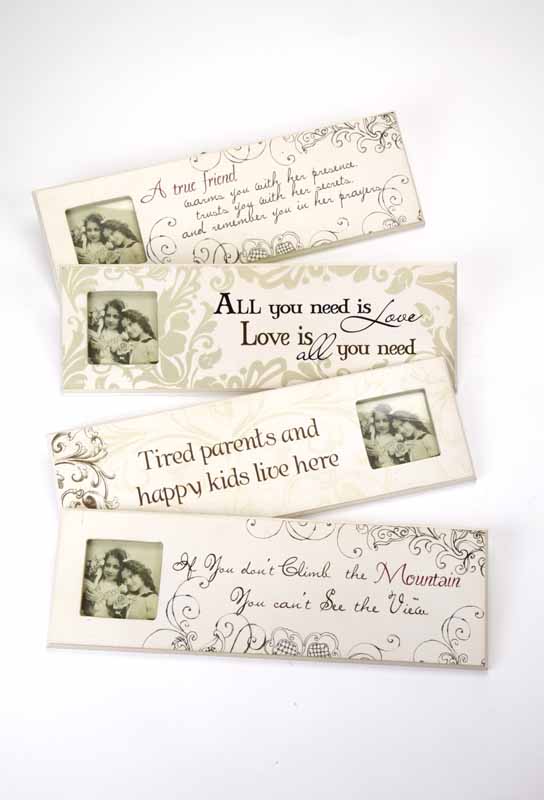 A true friend
warms you with her presence.
trusts you with her secrets.
and remember you in her prayers
ALL you need is Love
Love is all you need
Tired parents and
happy kids live here
If You don't Climb the Mountain
You can't See the View